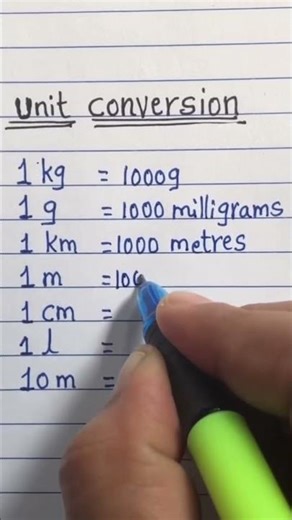 Unit conversion
1 kg = 1000g
1 g = 1000 milligrams
1 km = 1000 metres
1 m = 100
1 cm =
1 l =
10 m =